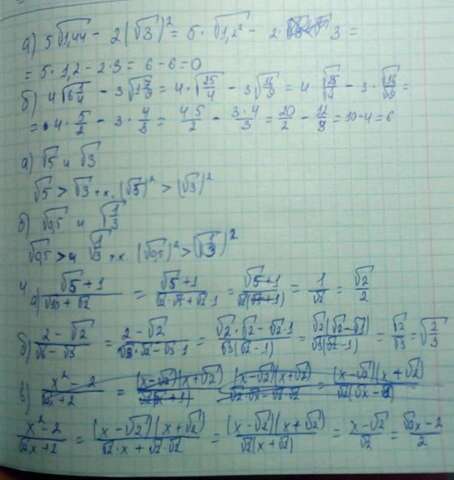 а) 5√1,44 − 2(√3)² = 5·√1,2² − 2· 3 =
= 5·1,2 − 2·3 = 6 − 6 = 0
б) 4√6 1/4 − 3√1 7/9 = 4·√25/4 − 3√16/9 = 4·√25/4 − 3·√16/9 =
= 4·5/2 − 3·4/3 = 4·5/2 − 3·4/3 = 20/2 − 12/3 = 10−4 = 6
а) √5 и √3
√5 > √3 т.к. (√5)² > (√3)²
б) √0,5 и √1/3
√0,5 > √1/3 т.к. (√0,5)² > (√1/3)²
4
а) √5+1/√10+√2 = √5+1/√2·√5+√2·1 = √5+1/√2(√5+1) = 1/√2 = √2/2
б) 2−√2/√6−√3 = 2−√2/√3·√2−√3·1 = √2·√2−√2·1/√3(√2−1) = √2(√2−1)/√3(√2−1) = √2/√3 = √2/3
в)
x²−2/√2x+2 = (x−√2)(x+√2)/√2·x+√2·√2 = (x−√2)(x+√2)/√2(x+√2) = x−√2/√2 = √2x−2/2